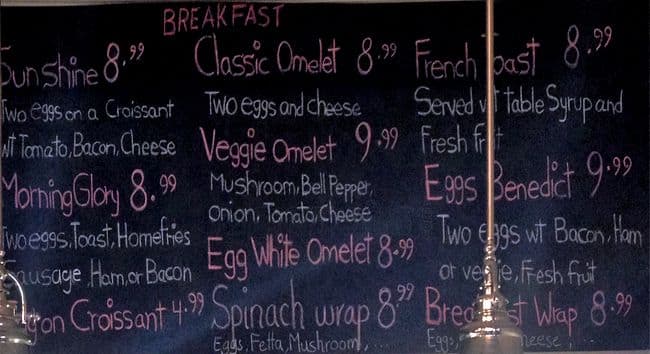 BREAKFAST
Sunshine 8.99
Two eggs on a Croissant
wt Tomato, Bacon, Cheese
Morning Glory 8.99
Two eggs, Toast, Homefries
Sausage, Ham, or Bacon
on Croissant 4.99
Classic Omelet 8.99
Two eggs and cheese
Veggie Omelet 9.99
Mushroom, Bell Pepper,
onion, Tomato, Cheese
Egg White Omelet 8.99
Spinach wrap 8.99
Eggs, Fetta, Mushroom, ...
French Toast 8.99
Served wt Table Syrup and
Fresh fruit
Eggs Benedict 9.99
Two eggs wt Bacon, Ham
or veggie, Fresh fruit
Breakfast Wrap 8.99
Eggs, Cheese, ...